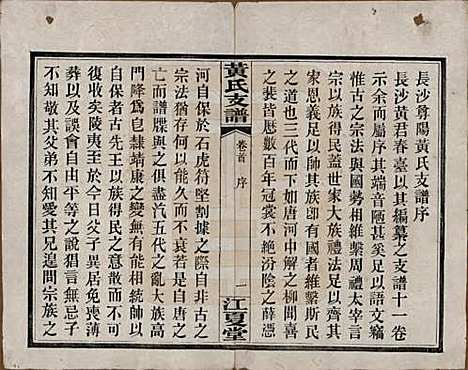 長沙尊陽黃氏支譜序
長沙黃君春臺以其編纂之支譜十一卷
示余而屬序其端音陋甚奚足以語文竊
惟古之宗法與國勢相維繫周禮太宰言
宗以族得民蓋世家大族禮法足以齊其
家恩義足以師其族即有國者維繫斯民
之道也三代而下如唐河中解之柳聞喜
之裴皆歷數百年冠裳不絕汾陰之薛憑
黃氏支譜
卷首 序
一
江夏堂
河自保於石虎苻堅割據之際自非古之
宗法猶存何以能久而不衰若是自唐之
亡而譜牒與之俱盡汽五代之亂大族高
門降爲皂隸靖康之變無有能相統帥以
自保者古先王以族得民之遺意其不可
復收矣陵夷至於今日父子異宮兄喪薄
以及誤會自由平等之說猖言無忌子
不知敬其父弟不知愛其兄遑問宗族之